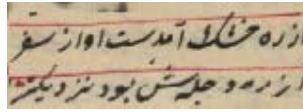 ازره خشک آمدست او از سفر
از ره دجله‌ش بود نزدیکتر